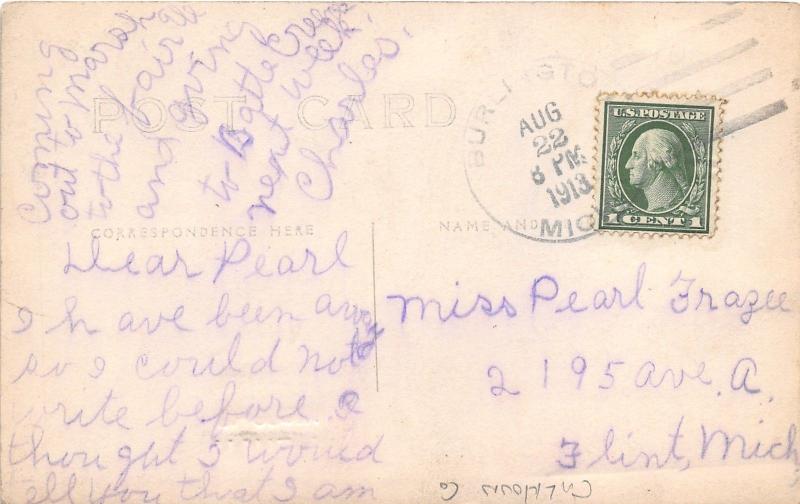 POST CARD
CORRESPONDENCE HERE
NAME AND
BURLINGTO
AUG
22
6 PM
1913
MICH
U.S. POSTAGE
1 CENT 1
Dear Pearl
I have been away
so I could not
write before I
thought I would
tell you that I am
coming
out to Marsh
to the fair
and going
to Battle Creek
next week
Charles.
Miss Pearl Frazee
2195 ave. A.
Flint, Mich
CALHOUN Co